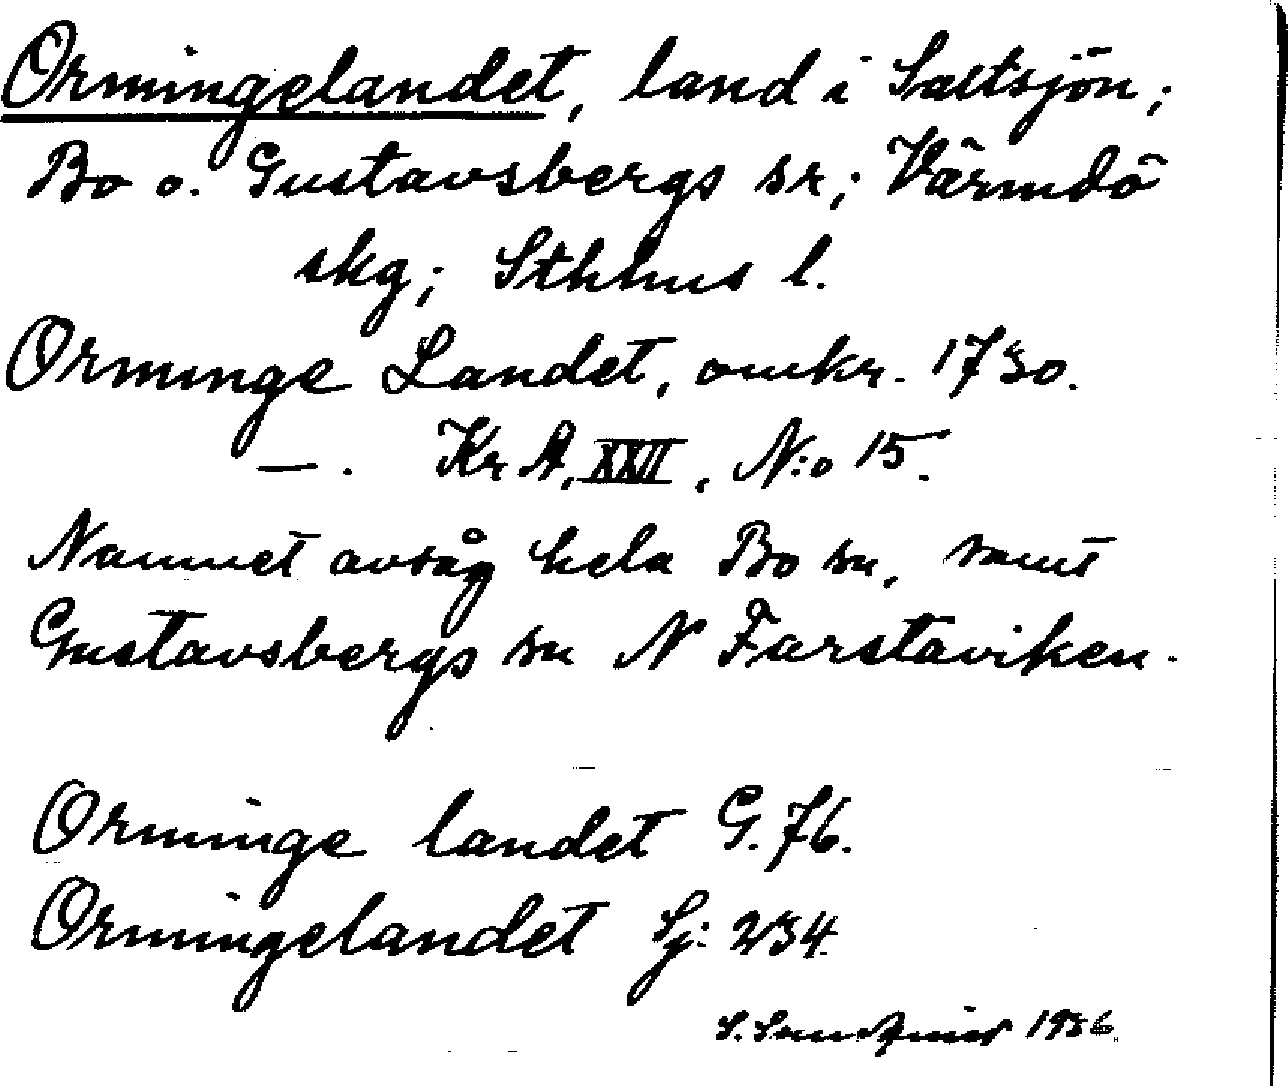 Ormingelandet, land i Saltsjön;
Bo o. Gustavsbergs sr; Värmdö
skg; Sthlms l.
Orminge Landet, omkr. 1730.
—. KrA, XXVII, N:o 15.
Namnet avsåg hela Bo sn, samt
Gustavsbergs sn N Farstaviken.
Orminge landet G. 76.
Ormingelandet Sj: 234.
S. 1936